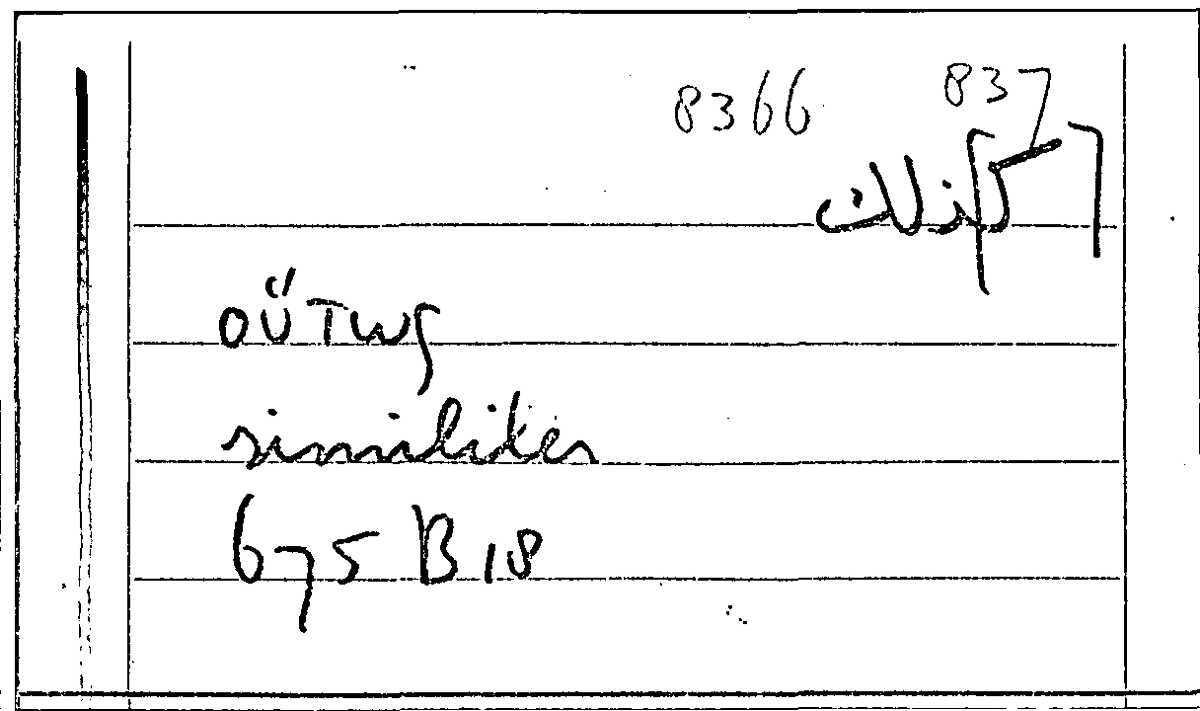 8366 837
[ك]ذلك
οὕτως
similiter
675 B 18